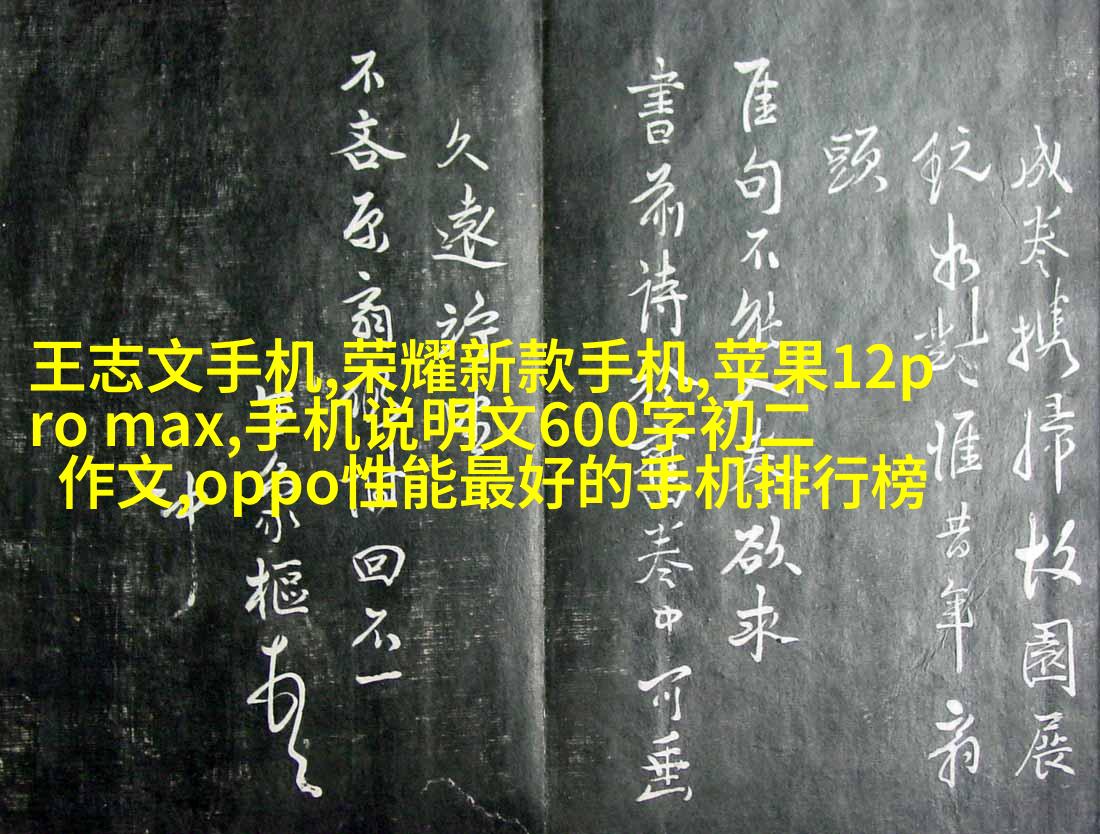 王志文手机,荣耀新款手机,苹果12p
ro max,手机说明文600字初二
作文,oppo性能最好的手机排行榜
成卷攜歸故園展
玩如對惟昔年翁
頭
佳句不能欲求
書前詩卷中可垂
久遠
不吝原扇回不一
樞